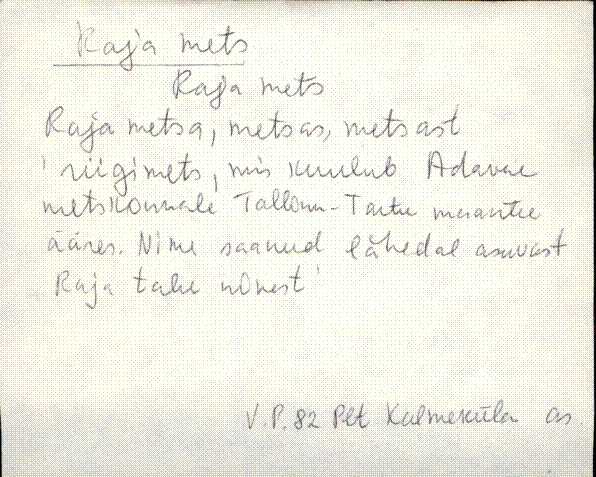 Raja mets
Raja mets
Raja metsa, metsas, metsast
' riigimets, mis kuulub Adavere
metskonnale Tallinn-Tartu maantee
ääres. Nime saanud lähedal asuvast
Raja talu nimest '
V.P. 82 Plt Kalmeküla as